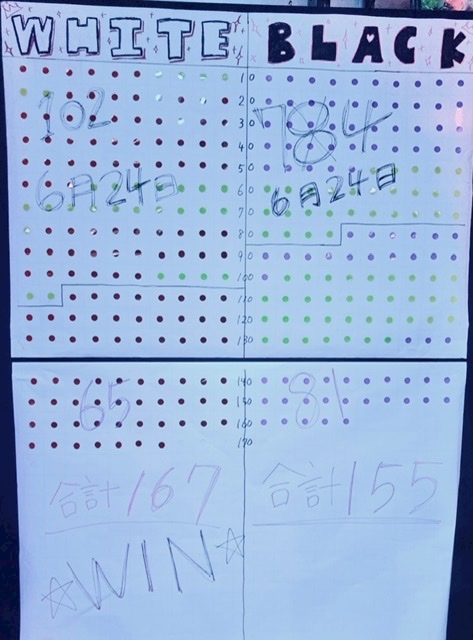 WHITE
BLACK
10
20
30
40
50
60
70
80
90
100
110
120
130
102
6月24日
784
6月24日
140
150
160
170
65
81
合計167
合計155
☆WIN☆